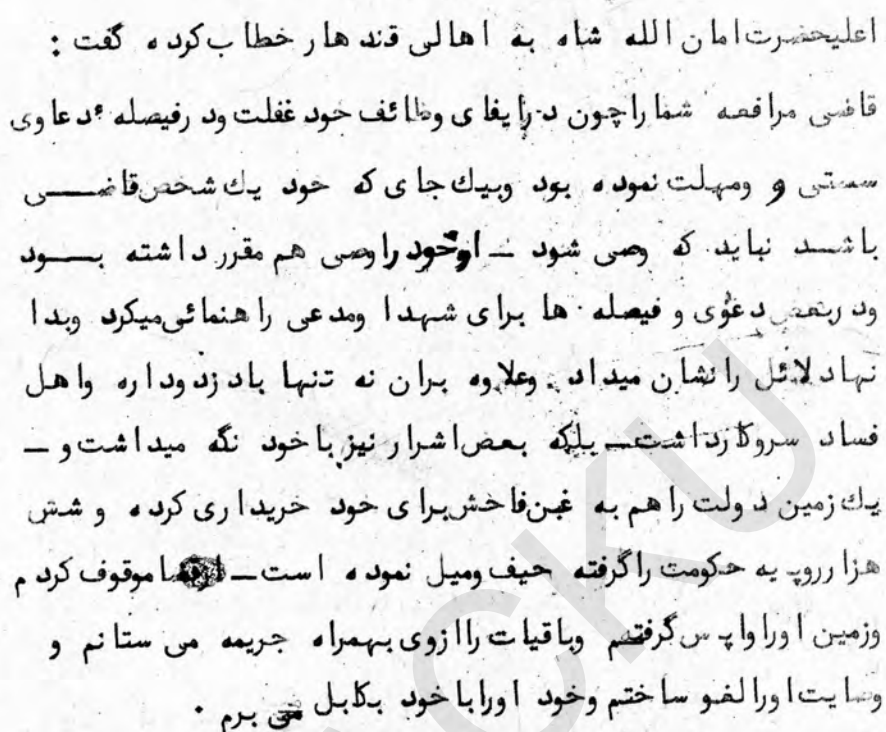 اعلیحضرت امان الله شاه به اهالی قندهار خطاب کرده گفت :
قاضی مرافعه شما را چون در ایفای وظائف خود غفلت ودر فیصله دعاوی
سستی و ومهلت نموده بود وبیك جای که خود یك شخص قاضی
باشد نباید که وصی شود ــ اوخود را وصی هم مقرر داشته بود
ودر بعض دعوی و فیصله ها برای شهدا ومدعی را هنمائی میکرد وبدا
نها دلائل را نشان میداد . وعلاوه بران نه تنها با دزد وداره واهل
فساد سروکار داشت ــ بلکه بعض اشرار نیز با خود نگه میداشت و ــ
یك زمین دولت را هم به غبن فاخش برای خود خریداری کرده و شش
هزار روپیه حکومت را گرفته حیف ومیل نموده است ــ موقوف کردم
وزمین اورا واپس گرفتم وباقیات را ازوی بهمراه جریمه می ستانم و
وصایت اورا لغو ساختم وخود اورا با خود بکابل می برم .
ACKU